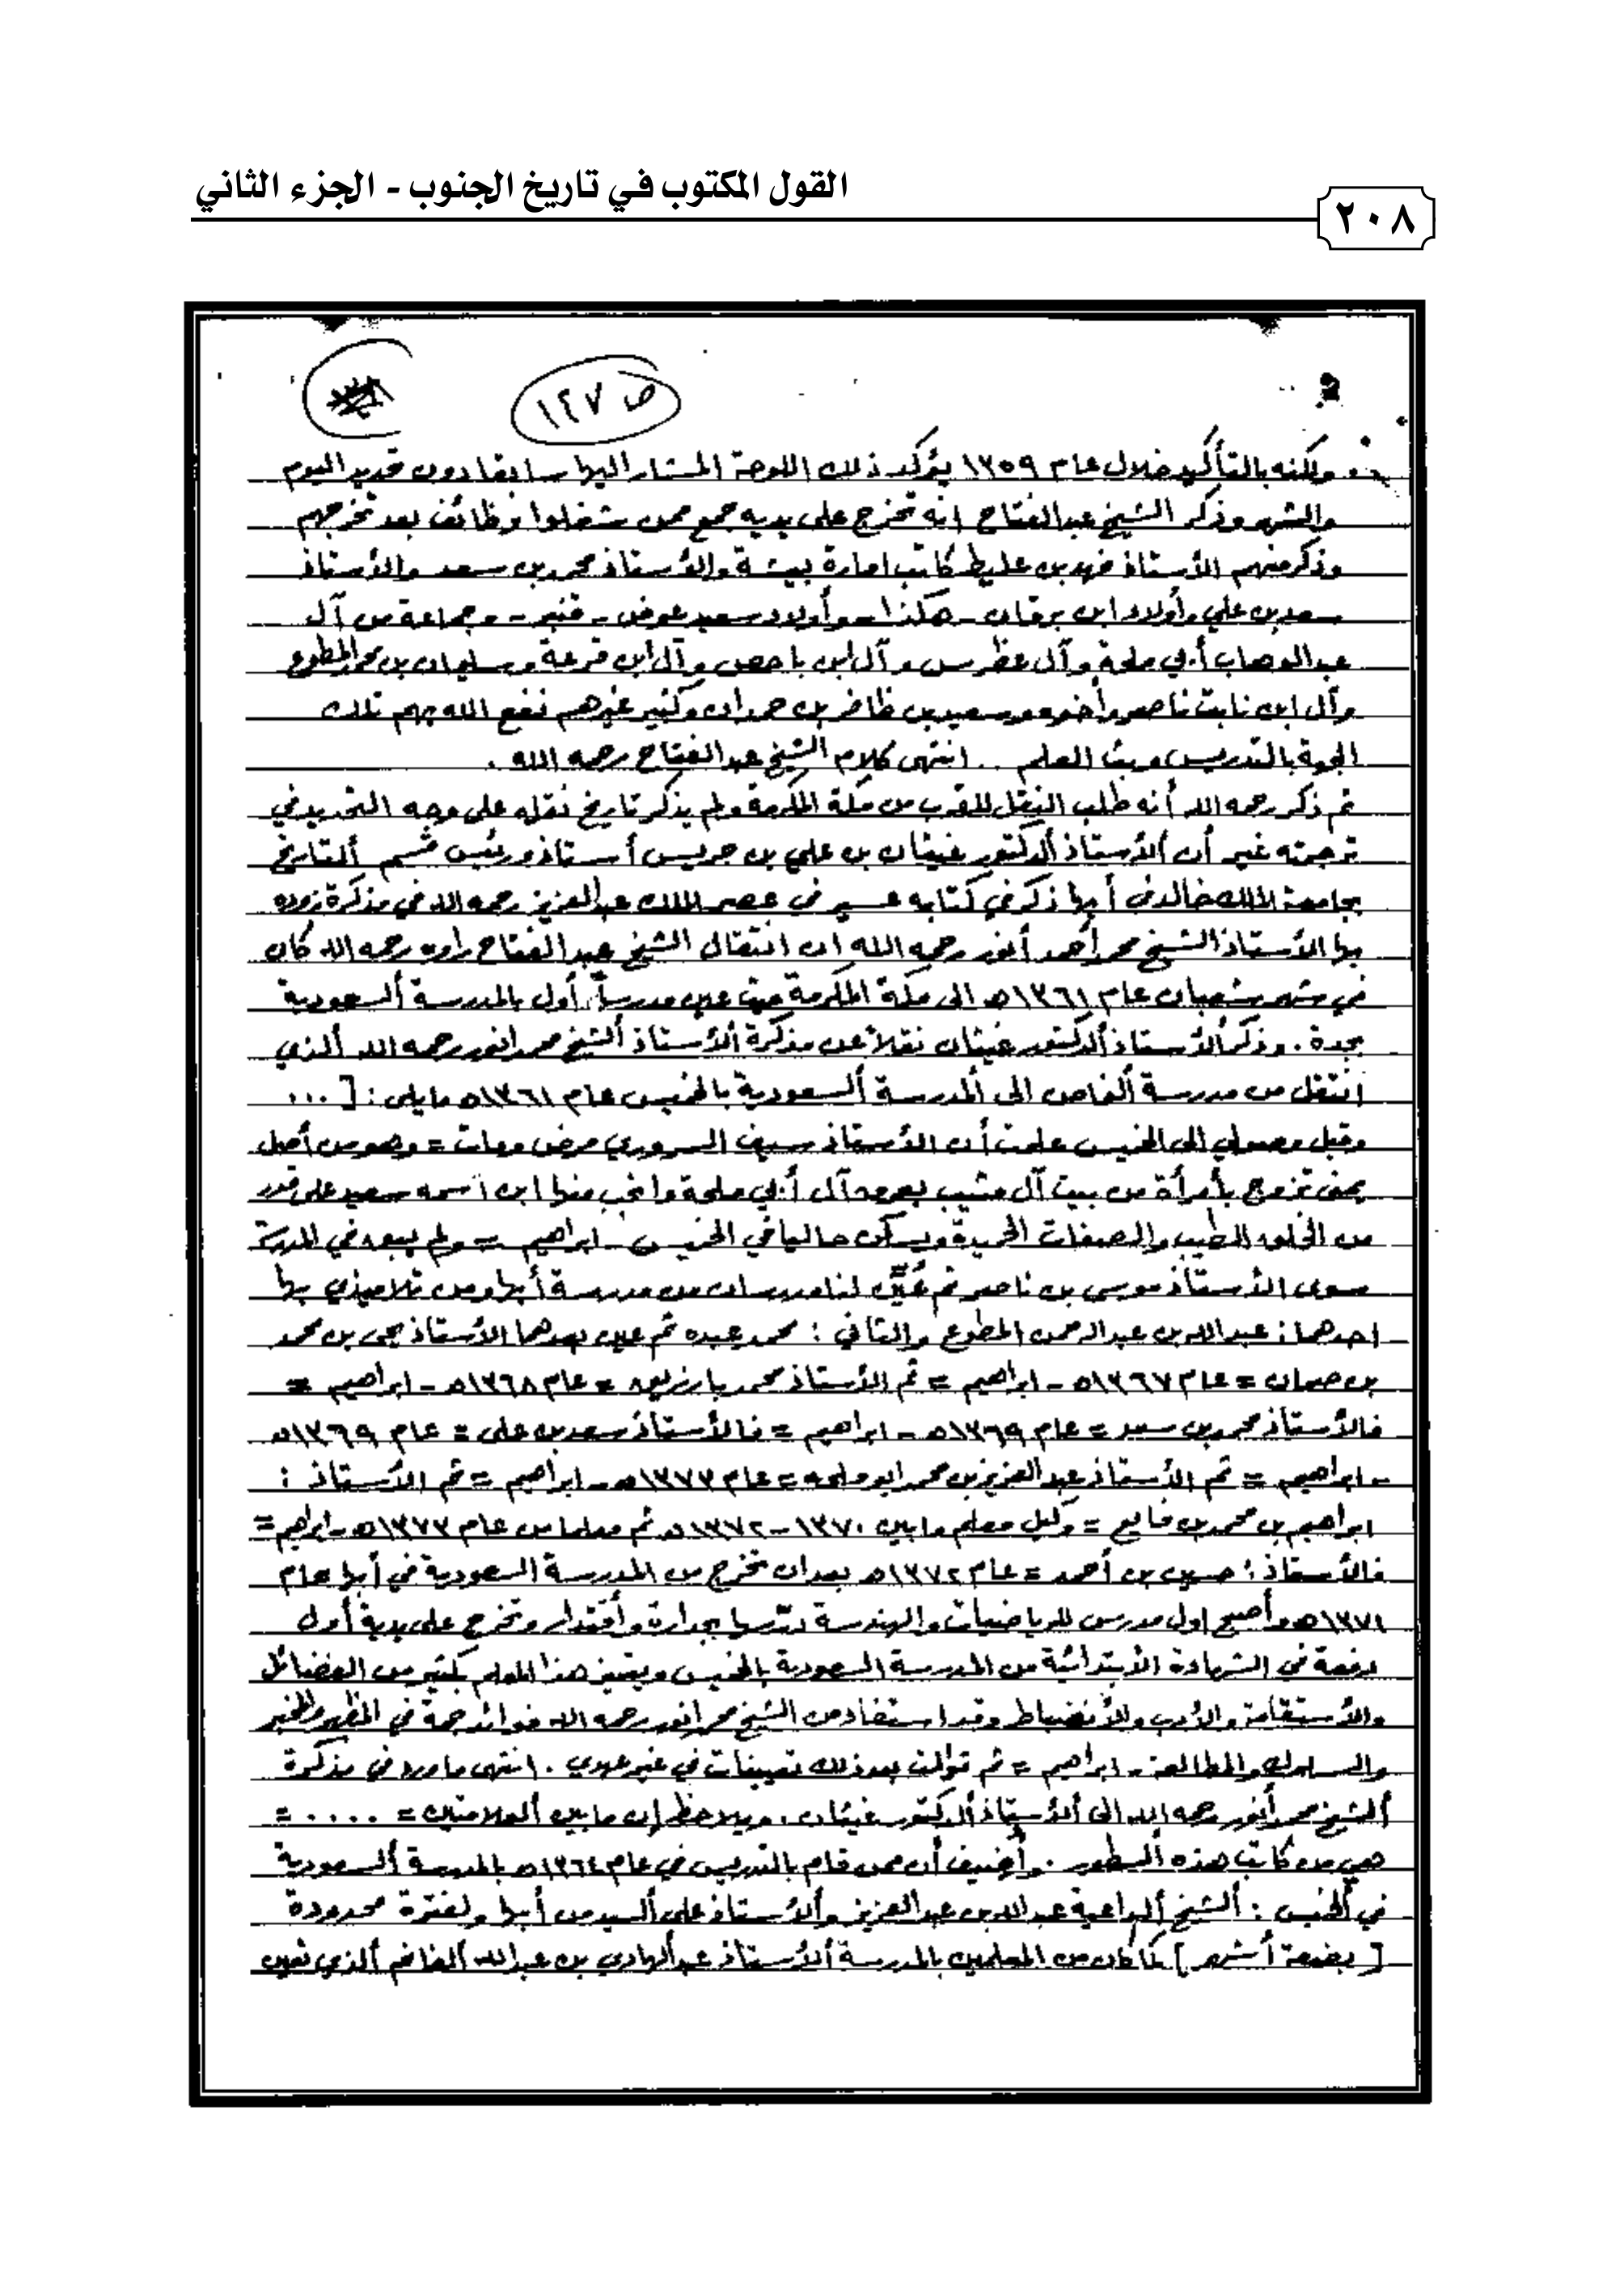 القول المكتوب في تاريخ الجنوب - الجزء الثاني
٢٠٨
ص ١٤٧
ولكنه بالتأكيد خلال عام ١٣٥٩ يؤكد ذلك اللوحة المشار اليها سابقا دون تحديد اليوم
والشهر وذكر الشيخ عبدالفتاح انه تخرج على يديه جمع ممن شغلوا وظائف بعد تخرجهم
وذكر منهم الأستاذ فهد بن عليط كاتب امارة بيشة والأستاذ محمد بن سعد والأستاذ
سعد بن علي وأولاد ابن برقان - هكذا - وأولاد سعيد عوض - قنبر - وجماعة من آل
عبدالوهاب أبي ملحة وآل عطرس وآل ابن باحص وآل ابن قرعة وسليمان بن محمد المطوع
وآل ابن نابت ناصر وأخوه وسعيد بن ظافر بن حمدان وكثير غيرهم نفع الله بهم تلك
الجهة بالتدريس وبث العلم .. انتهى كلام الشيخ عبدالفتاح رحمه الله .
ثم ذكر رحمه الله أنه طلب النقل للقرب من مكة المكرمة ولم يذكر تاريخ نقله على وجه التحديد في
ترجمته غير أن الأستاذ الدكتور غيثان بن علي بن جريس أستاذ ورئيس قسم التاريخ
بجامعة الملك خالد في أبها ذكر في كتابه عسير في عصر الملك عبدالعزيز رحمه الله في مذكرة زوده
بها الأستاذ الشيخ محمد أحمد أنور رحمه الله ان انتقال الشيخ عبدالفتاح راوه رحمه الله كان
في شهر شعبان عام ١٣٦١ه الى مكة المكرمة حيث عين مدرساً أول بالمدرسة السعودية
بجدة . وذكر الأستاذ الدكتور غيثان نقلاً عن مذكرة الأستاذ الشيخ محمد انور رحمه الله الذي
انتقل من مدرسة النماص الى المدرسة السعودية بالخميس عام ١٣٦١ه مايلي : [ ...
وقبل وصولي الى الخميس علمت أن الأستاذ سيف السروري مرض ومات = وهو من أصل
يمني تزوج بأمرأة من بيت آل مشيب بعرد آل أبي ملحة وانجب منها ابن اسمه سعيد على قدر
من الخلق الطيب والصفات الحميدة ويسكن حاليا في الخميس - ابراهيم = ولم يبق في المدرسة
سوى الأستاذ موسى بن ناصر ثم عُيّن لنا مدرسان من مدرسة أبها ومن تلاميذي بها
احدهما : عبدالله بن عبدالرحمن المطوع والثاني : محمد عبده ثم عين بعدهما الأستاذ يحيى بن محمد
بن صمان = عام ١٣٦٧ه - ابراهيم = ثم الأستاذ محمد بارزيق = عام ١٣٦٨ه - ابراهيم =
فالأستاذ محمد بن سعد = عام ١٣٦٩ه - ابراهيم = فالأستاذ سعد بن علي = عام ١٣٦٩ه
- ابراهيم = ثم الأستاذ عبدالعزيز بن محمد ابو ملحه = عام ١٣٧٣ه - ابراهيم = ثم الأستاذ :
ابراهيم بن محمد بن فايع = وكيل معلم ما بين ١٣٧٠-١٣٧٢ه ثم معلما من عام ١٣٧٣ه - ابراهيم =
فالأستاذ : حسين بن أحمد = عام ١٣٧٢ه بعد ان تخرج من المدرسة السعودية في أبها عام
١٣٧١ه وأصبح اول مدرس للرياضيات والهندسة درّسها بجدارة وأقتدار وتخرج على يديه أول
دفعة في الشهادة الأبتدائية من المدرسة السعودية بالخميس ويتميز هذا المعلم بكثير من الفضائل
والأستقامة والأدب والأنضباط وقد استفاد من الشيخ محمد انور رحمه الله فوائد جمة في المظهر والمخبر
والسلوك والمطالعة - ابراهيم = ثم توالت بعد ذلك تعيينات في غير عهدي . انتهى ما ورد في مذكرة
الشيخ محمد أنور رحمه الله الى الأستاذ الدكتور غيثان . ويلاحظ ان ما بين العلامتين = .... =
هي من كاتب هذه السطور . وأضيف أن ممن قام بالتدريس في عام ١٣٦٤ه بالمدرسة السعودية
في الخميس : الشيخ الداعية عبدالله بن عبدالعزيز والأستاذ علي السيد من أبها ولفترة محدودة
[ بضعة أشهر ] كما كان من المعلمين بالمدرسة الأستاذ عبدالهادي بن عبدالله الفاخم الذي تعين